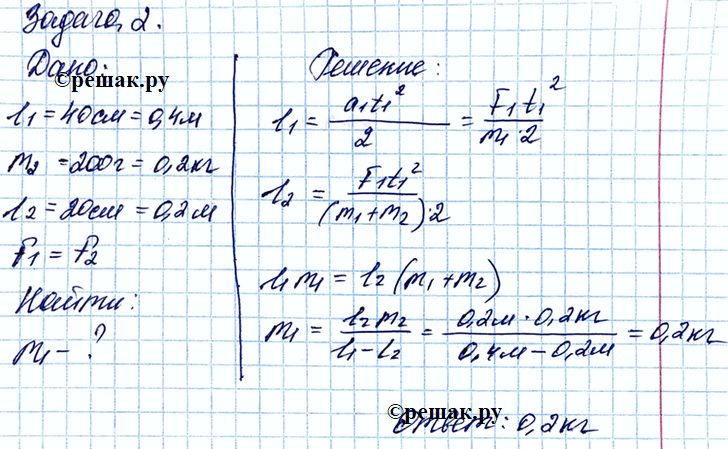 Задача 2.
Дано:
©решак.ру
l₁ = 40см = 0,4м
m₂ = 200г = 0,2кг
l₂ = 20см = 0,2м
F₁ = F₂
Найти:
m₁ - ?
Решение:
l₁ = a₁t₁²/2 = F₁t₁²/m₁·2
l₂ = F₁t₁²/(m₁+m₂)·2
l₁m₁ = l₂(m₁+m₂)
m₁ = l₂m₂/l₁-l₂ = 0,2м·0,2кг/0,4м-0,2м = 0,2кг
©решак.ру
Ответ: 0,2кг